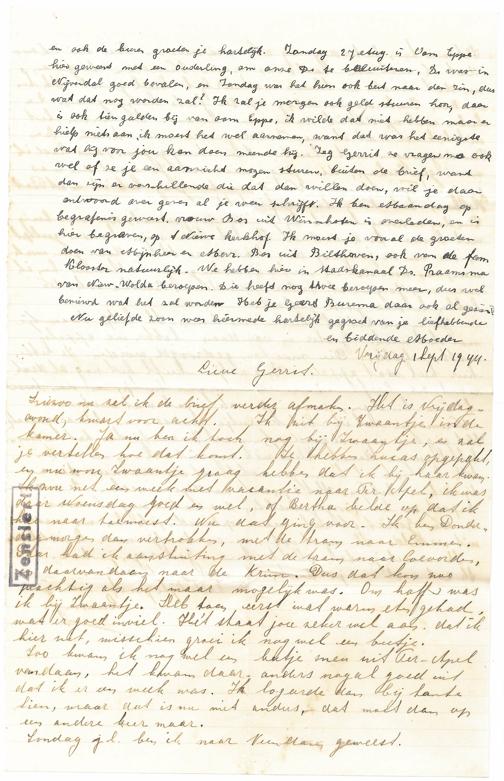 en ook de buren groeten je hartelijk. Zondag 27 Aug. is Oom Eppe
hier geweest met een ouderling, om onze Ds te beluisteren, Ds was in
Nijverdal goed bevalen, en Zondag was het hun ook best naar den zin, dus
wat dat nog worden zal? Ik zal je morgen ook geld sturen hoor, daar
is ook tien gulden bij van oom Eppe, ik wilde dat niet hebben maar er
hielp niets aan, ik moest het wel aannemen, want dat was het eenigste
wat hij voor jou kan doen meende hij. Zeg Gerrit ze vragen me ook
wel of ze je een aanzicht mogen sturen, buiten de brief, want
dan zijn er verschillende die dat dan willen doen, wil je daar
antwoord over geven al je weer schrijft. Ik ben Maandag op
begrafenis geweest, vrouw Bos uit is overleden, en is
hier begraven, op 't Nieuwe kerkhof. Ik moest je vooral de groeten
doen van Mijnheer en Mevr. Bos uit Bilthoven, ook van de fam
Klooster natuurlijk. We hebben hier in Stadskanaal Ds. Praamsma
van Nieuw-Wolda beroepen. Die heeft nog twee beroepen meer, dus wel
benieuwd wat het zal worden. Heb je Geert Burema daar ook al gezien?
Nu geliefde zoon wees hiermede hartelijk gegroet van je liefhebbende
en biddende Moeder
Vrijdag 1 Sept 1944.
Lieve Gerrit.
Ziezoo nu zal ik de brief verder afmaken. Het is Vrijdag-
avond, kwart voor acht. Ik zit bij Zwaantje in de
kamer. Ja nu ben ik toch nog bij Zwaantje, en zal
je vertellen hoe dat komt. Ze hebben opgepakt,
en nu wou Zwaantje graag hebben dat ik bij haar kwam.
met een week met vacantie naar Ter Apel, ik was
er Woensdag goed en wel, of Bertha belde op dat ik
naar toe moest. Nu dat ging voor. Ik ben Donder-
morgen dan vertrokken, met de tram naar Emmen,
daar had ik aansluiting met de tram naar Coevorden,
daarvandaan naar de Krim. Dus dat kon zoo
prachtig als het maar mogelijk was. Om half was
ik bij Zwaantje. toen, eerst wat warm eten gehad,
wat er goed inviel. Het staat jou zeker wel aan dat ik
hier zit, misschien groei ik nog wel een beetje.
Zoo kwam ik nog wel een beetje meu uit Ter-Apel
vandaan, het kwam daar anders nogal goed uit
dat ik er een week was. Ik logeerde dan bij tante
Sien, maar dat is nu niet anders, dat moet dan op
een andere keer maar.
Zondag j.l. ben ik naar Veendam geweest.
Zensiert